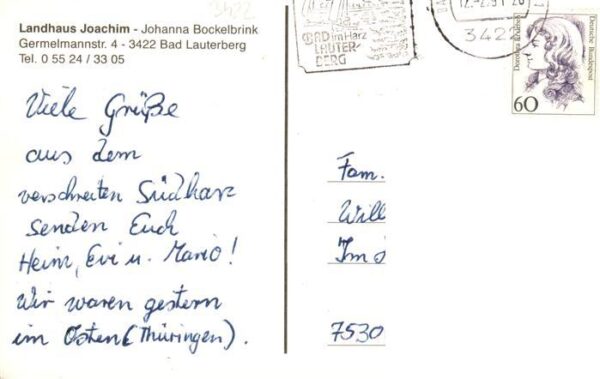 3422
Landhaus Joachim - Johanna Bockelbrink
Germelmannstr. 4 - 3422 Bad Lauterberg
Tel. 0 55 24 / 33 05
Viele Grüße
aus dem
verschneiten Südharz
senden Euch
Heim, Evi u. Mario!
Wir waren gestern
im Osten (Thüringen).
BAD im Harz
LAUTER-
BERG
12.-2.91-20
3422
Dorothea Erxleben
Deutsche Bundespost
60
Fam.
Will
Im
7530